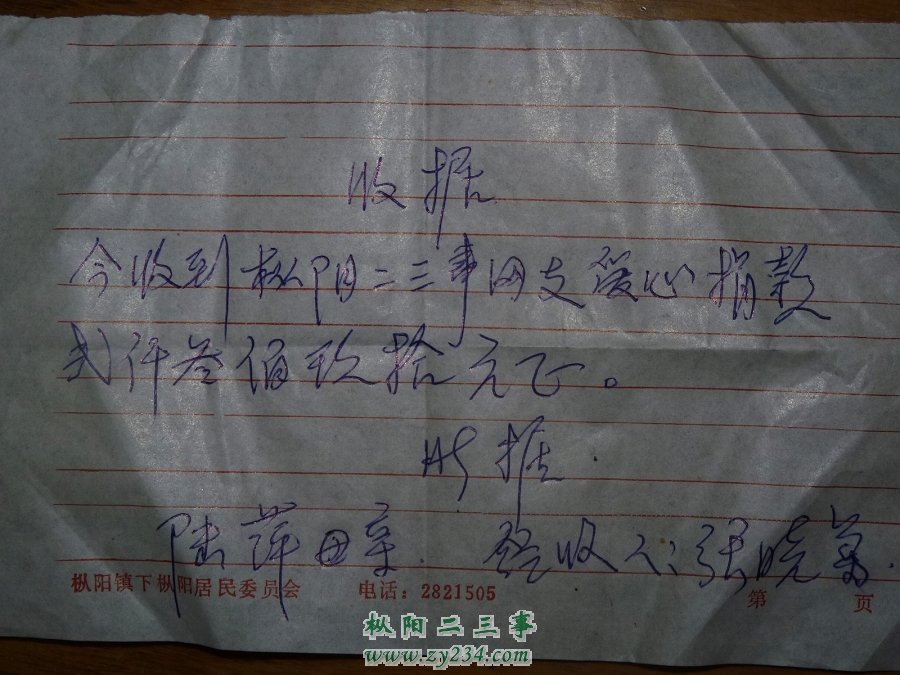 收据
今收到枞阳二三事网友爱心捐款
贰仟叁佰玖拾元正。
此据.
陆萍母亲. 经收人:张晓芳.
枞阳镇下枞阳居民委员会 电话:2821505 第 页
枞阳二三事
www.zy234.com